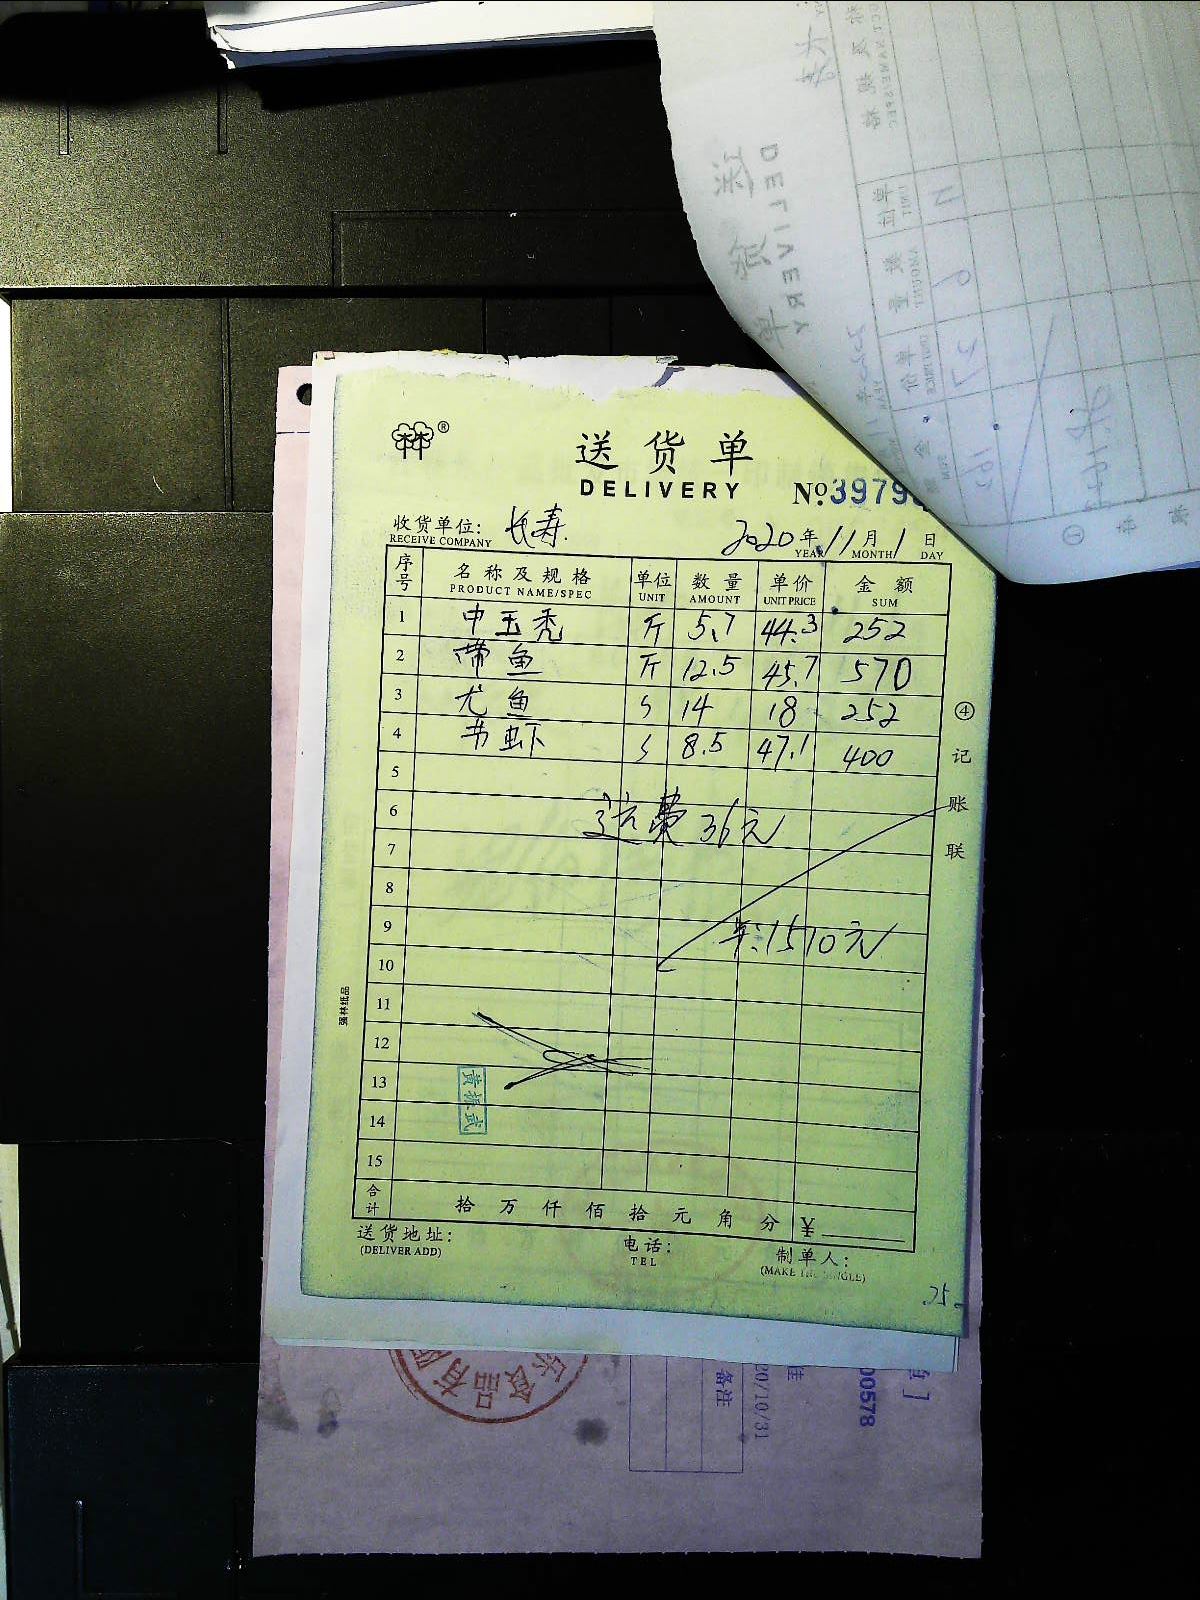 送货单
DELIVERY
№3979
收货单位: 长寿
RECEIVE COMPANY
2020年11月1日
YEAR MONTH DAY
序号 名称及规格 单位 数量 单价 金额
PRODUCT NAME/SPEC UNIT AMOUNT UNIT PRICE SUM
1 中玉秃 斤 5.7 44.3 252
2 带鱼 斤 12.5 45.7 570
3 尤鱼 14 18 252
4 节虾 8.5 47.1 400
5
6 运费36元
7
8
9 1510元
10
11
12
13
14
15
合计 拾万仟佰拾元角分 ¥
送货地址: 电话: 制单人:
(DELIVER ADD) TEL (MAKE THE SINGLE)
④记账联
强林纸品
黄振武
25
00578
20/10/31
备注
DELIVERY